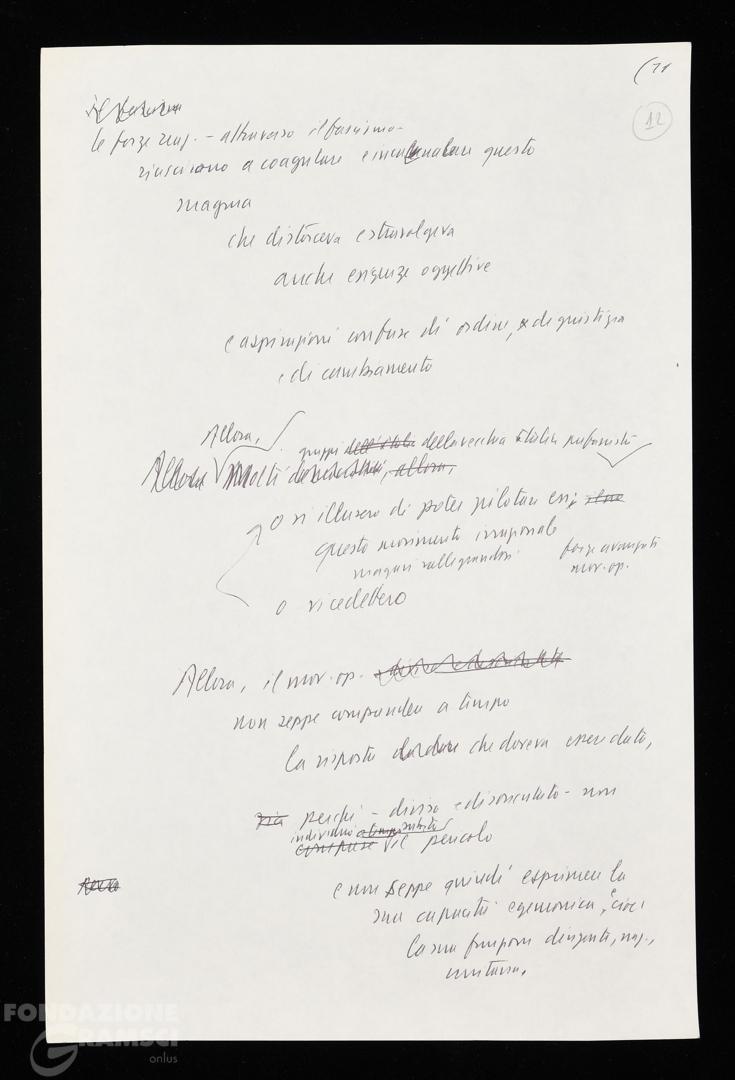 (11
12
le forze reaz. - attraverso il fascismo -
riuscirono a coagulare e incanalare questo
magma
che distorceva e stravolgeva
anche esigenze oggettive
e aspirazioni confuse di ordine, di giustizia
e di cambiamento
Allora,
gruppi dell'Italia della vecchia Italia prefascista
Allora Molti allora,
o si illusero di poter pilotare essi
questo movimento irrazionale
magari rallegrandosi
forze avanzati
mov. op.
o vi cedettero
Allora, il mov. op.
non seppe comprendere a tempo
la risposta che doveva essere data,
perché - diviso e disorientato - non
individuò subito
comprese il pericolo
e non seppe quindi esprimere la
sua capacità egemonica, cioè
la sua funzione dirigente, naz.,
unitaria.
FONDAZIONE
GRAMSCI
onlus